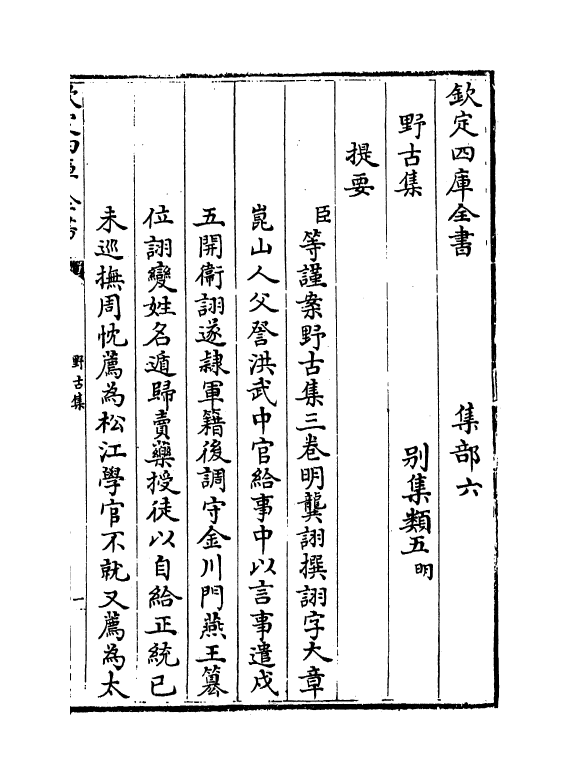 欽定四庫全書 集部六
野古集 别集類五明
提要
臣等謹案野古集三卷明龔詡撰詡字大章
崑山人父詧洪武中官給事中以言事遣戍
五開衞詡遂隷軍籍後調守金川門燕王簒
位詡變姓名遁歸賣藥授徒以自給正統己
未巡撫周忱薦為松江學官不就又薦為太
欽定四庫全書
野古集
一